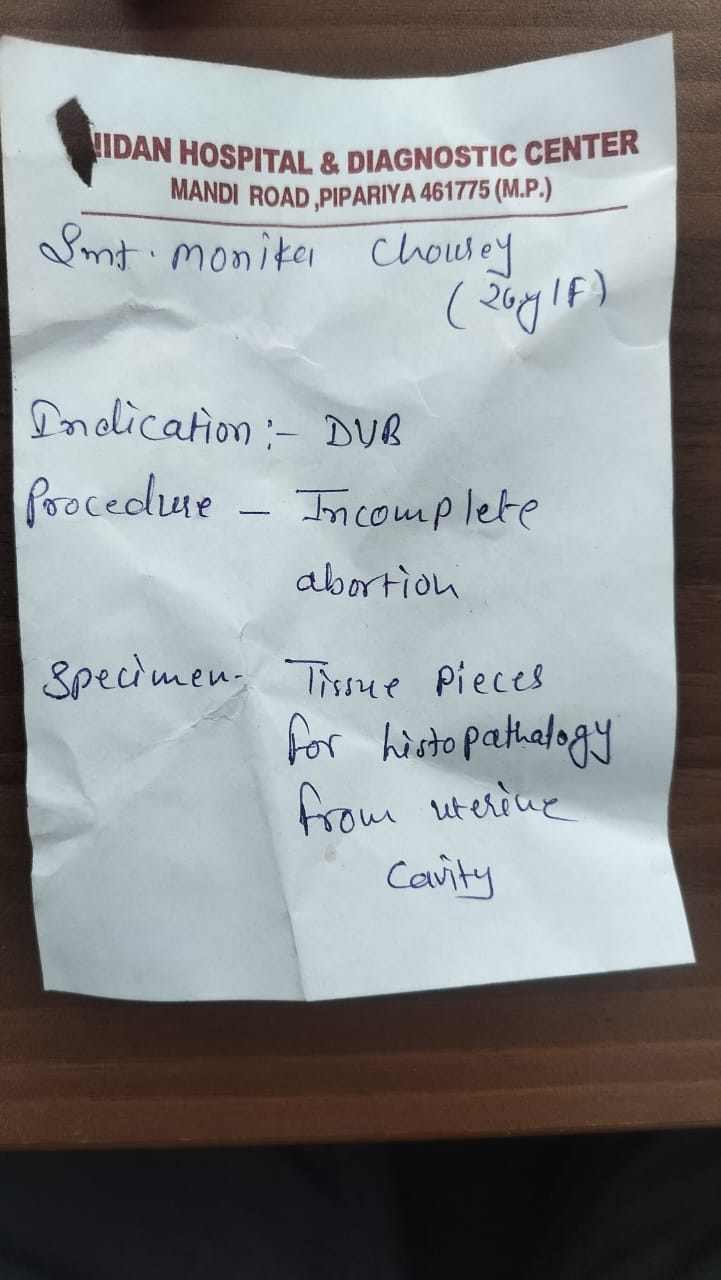 IIDAN HOSPITAL & DIAGNOSTIC CENTER
MANDI ROAD ,PIPARIYA 461775 (M.P.)
Smt. Monika Chousey
(26y/F)
Indication :- DUB
Procedure - Incomplete
abortion
Specimen- Tissue pieces
for histopathalogy
from uterine
Cavity